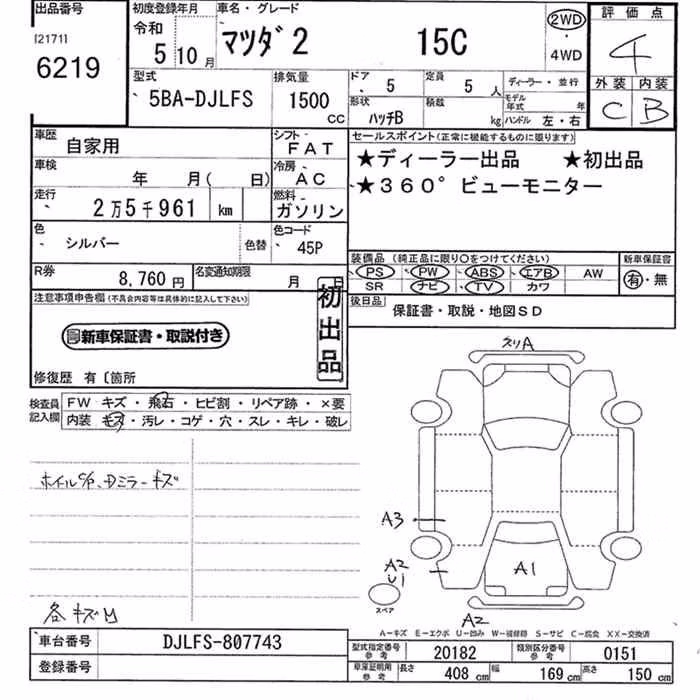 出品番号
[2171]
6219
初度登録年月
令和
5 10月
車名・グレード
マツダ2 15C
2WD
・
4WD
評価点
4
外装 内装
C B
型式
5BA-DJLFS
排気量
1500
CC
ドア 5
定員 5 人
ディーラー・並行
形状 ハッチB
積載 kg
モデル年式 年
ハンドル 左・右
車歴 自家用
シフト FAT
車検 年 月( 日)
冷房 AC
走行 2万5千961 km
燃料 ガソリン
色 シルバー 色替
色コード 45P
R券 8,760円
名変通知期限 月 日
セールスポイント(正常に機能するものに限ります)
★ディーラー出品 ★初出品
★360°ビューモニター
装備品(純正品に限り○をつけてください)
PS PW ABS エアB AW
SR ナビ TV カワ
新車保証書
有・無
後日品
保証書・取説・地図SD
注意事項申告欄(不具合内容等は具体的に記入して下さい)
新車保証書・取説付き
初出品
修復歴 有〔箇所
検査員記入欄
FW キズ・飛石・ヒビ割・リペア跡・×要
内装 キズ・汚レ・コゲ・穴・スレ・キレ・破レ
A3
A2
U1
A1
A2
スペア
A-キズ E-エクボ U-凹み W-補修跡 S-サビ C-腐食 XX-交換済
車台番号 DJLFS-807743
登録番号
型式指定番号 参考 20182
類別区分番号 参考 0151
車庫証明用 参考 長さ 408 cm 幅 169 cm 高さ 150 cm